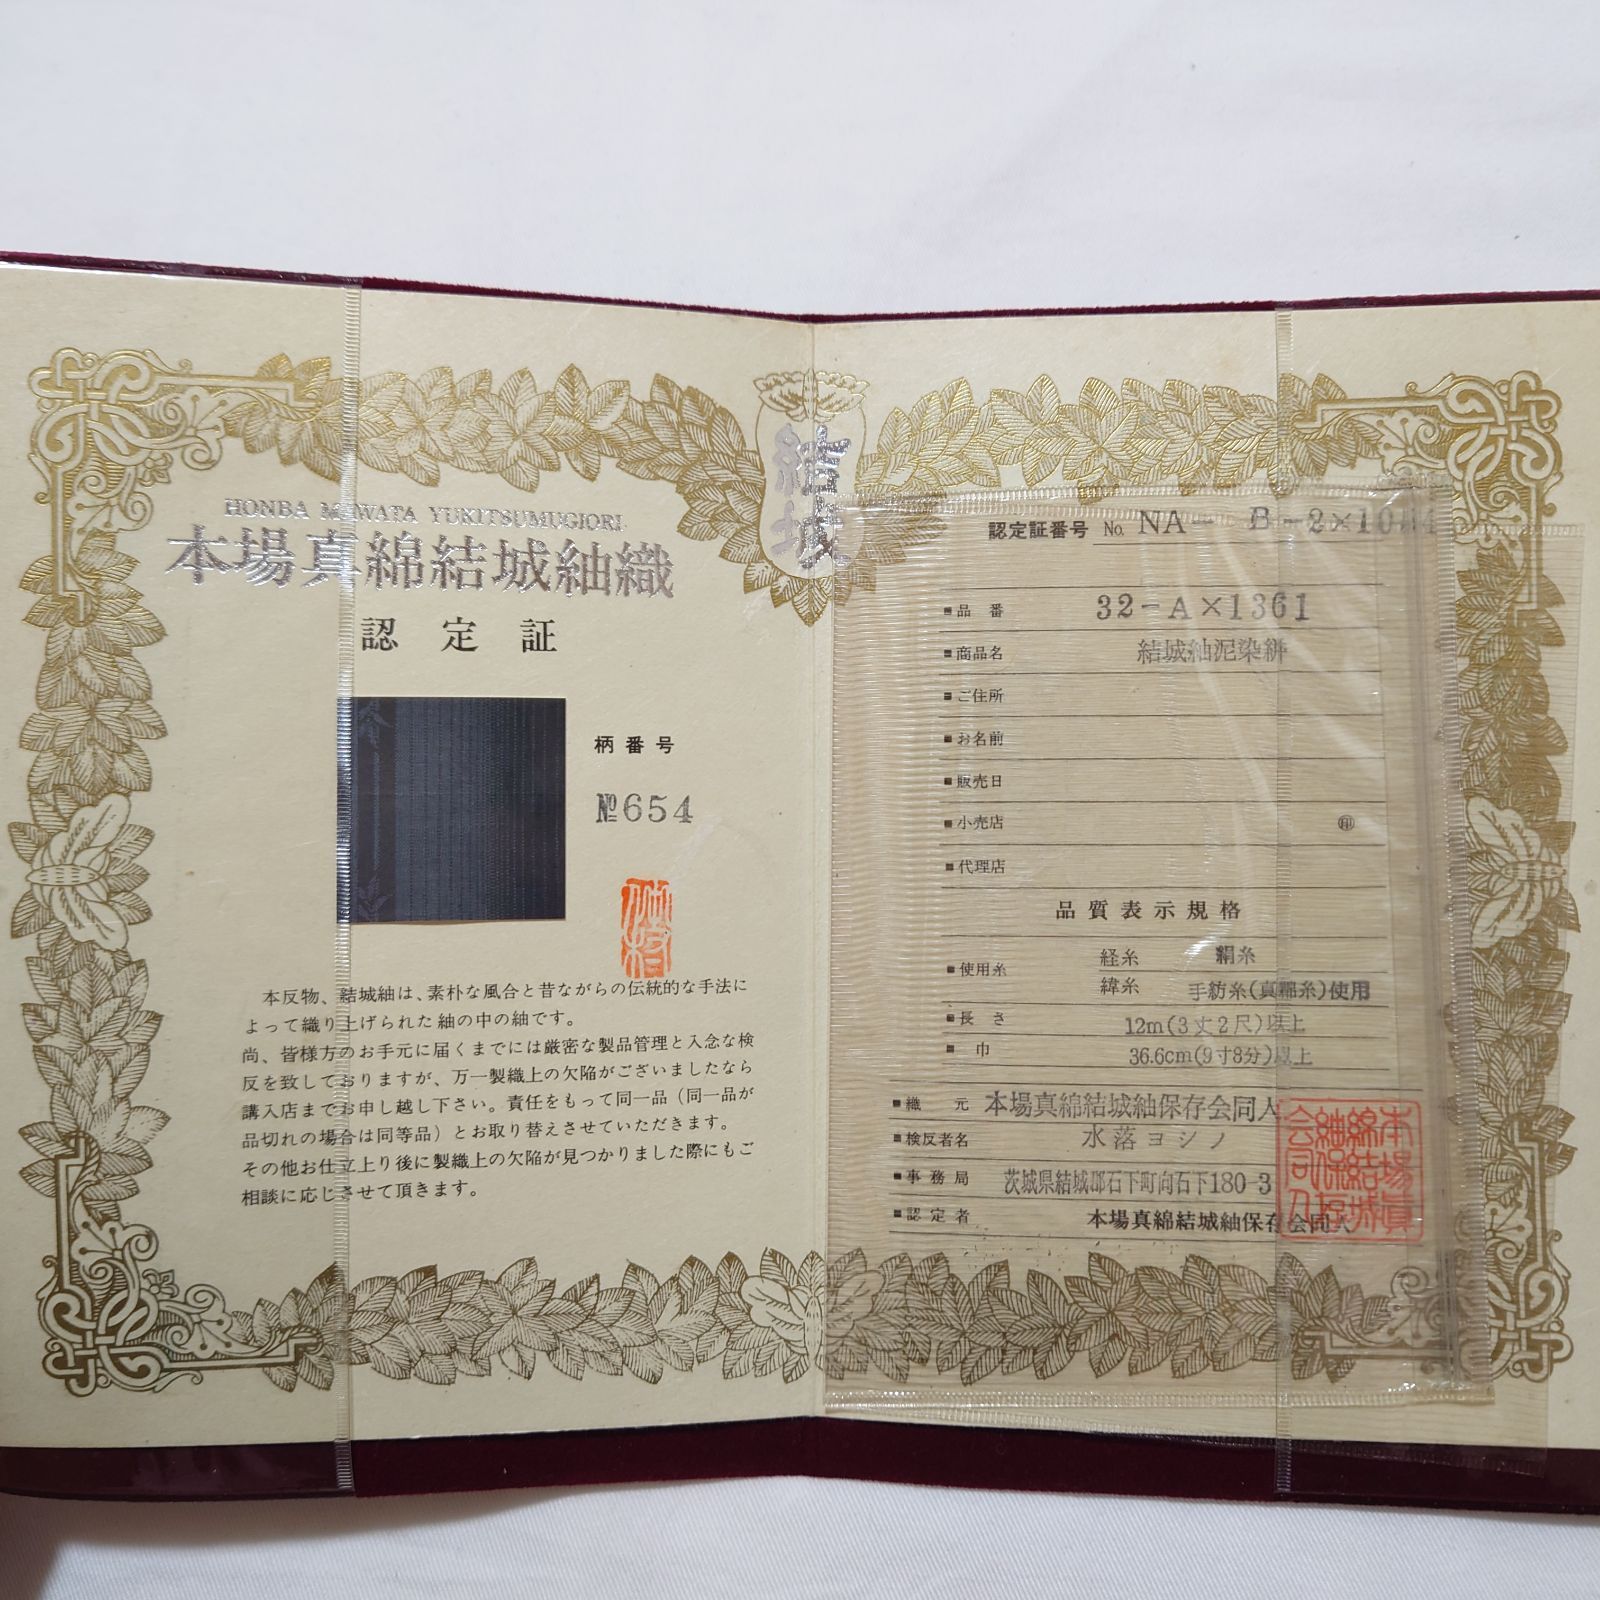 HONBA MAWATA YUKITSUMUGIORI
本場真綿結城紬織
認定証
柄番号
№654
合格
本反物、結城紬は、素朴な風合と昔ながらの伝統的な手法に
よって織り上げられた紬の中の紬です。
尚、皆様方のお手元に届くまでには厳密な製品管理と入念な検
反を致しておりますが、万一製織上の欠陥がございましたなら
講入店までお申し越し下さい。責任をもって同一品(同一品が
品切れの場合は同等品)とお取り替えさせていただきます。
その他お仕立上り後に製織上の欠陥が見つかりました際にもご
相談に応じさせて頂きます。
結城
認定証番号 No. NA- B-2×
■品番 32-A×1361
■商品名 結城紬泥染絣
■ご住所
■お名前
■販売日
■小売店 ㊞
■代理店
品質表示規格
■使用糸 経糸 絹糸
緯糸 手紡糸(真綿糸)使用
■長さ 12m(3丈2尺)以上
■巾 36.6cm(9寸8分)以上
■織元 本場真綿結城紬保存会同人
■検反者名 水落ヨシノ
■事務局 茨城県結城郡石下町向石下180-3
■認定者 本場真綿結城紬保存会同人
本場真
綿結城
紬保存
会同人